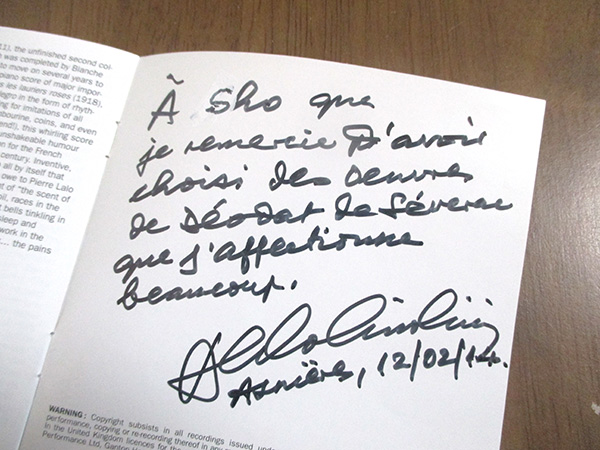 the unfinished second col-
was completed by Blanche
to move on several years to
piano score of major impor-
les lauriers roses (1918),
in the form of rhyth-
for imitations of all
coins, and even
this whirling score
unshakeable humour
for the French
century. Inventive,
all by itself that
owe to Pierre Lalo
of "the scent of
races in the
bells tinkling in
and
work in the
... the pains
À Sho que
je remercie d'avoir
choisi des oeuvres
de Déodat de Séverac
que j'affectionne
beaucoup.
Aldo Ciccolini
Asnières, 12/02/14.
WARNING: Copyright subsists in all recordings issued under
performance, copying or re-recording thereof in any
in the United Kingdom licences for the
Performance Ltd,